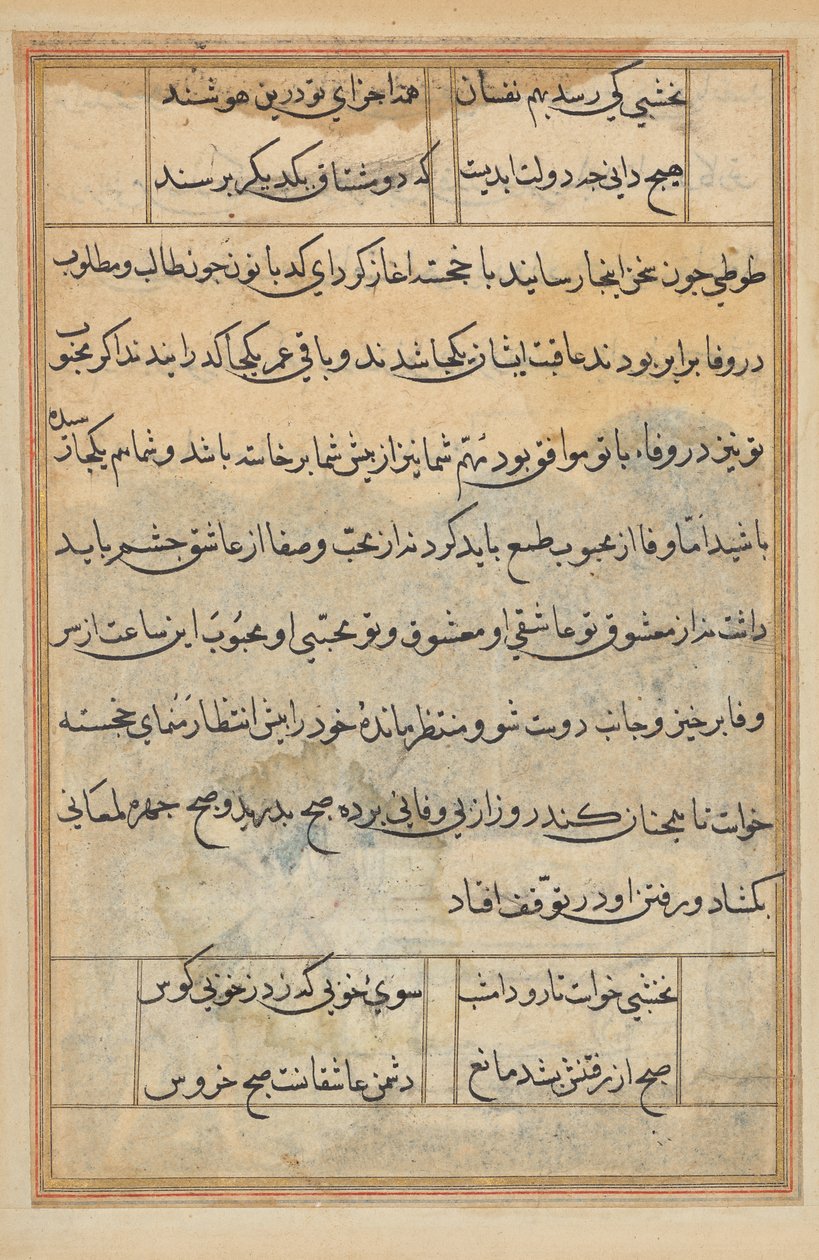 نخشبي کي رسد بهم نفسان همه اجزاي تو درين هوشند
هیچ داني چه دولت ابدیت که دو مشتاق بیکدیکر برسند
طوطي جون سخن اینجا رسانید با خجسته اغاز کرد اي کدبانو نجون طالب و مطلوب
در وفا برابر بودند عاقبت ایشان یکجا شدند و باقي عمر یکجا کذرانیدند اکر محبوب
تو نیز در وفاء با تو موافق بود مهم شما نیز از پیش شما برخاسته باشد و شما هم یکجا رسیده
باشید اَمّا وفا از محبوب طمع باید کرد نه از محبّ و صفا از عاشق جشم باید
داشت نه از معشوق تو عاشقي او معشوق و تو محبّي او محبُوبَ این ساعت از سر
وفا برخیز و جانب دوست شو و منتظر ماندۀ خود را بیش انتظار مَنماي خجسته
خواست تا همجنان کند روز از بي وفایي برده صبح بدرید و صبح جهره لمعاني
بکشاد و رفتن او در توقّف افتاد
نخشبي خواست تا رود امشب سوي خوبي که زد ز خوبي کوس
صبح از رفتنش بشد مانع دشمن عاشقانست صبح خروس